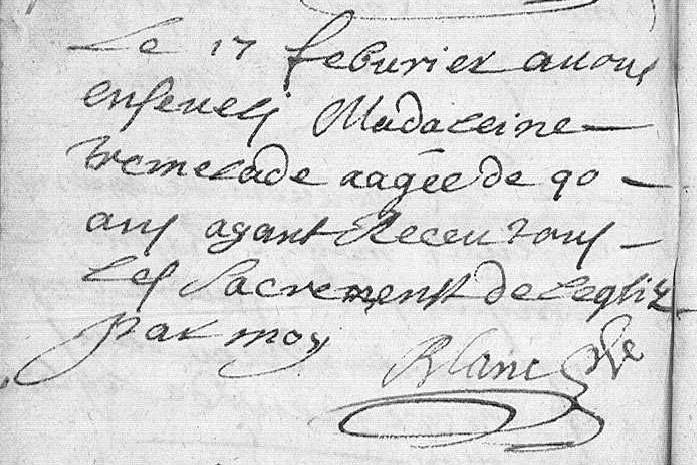 Le 17 feburier auons
enseueli Madaleine
tremelade aagée de 90
ans ayant Receu tous
les Sacrements de leglize
par moy
Blanc